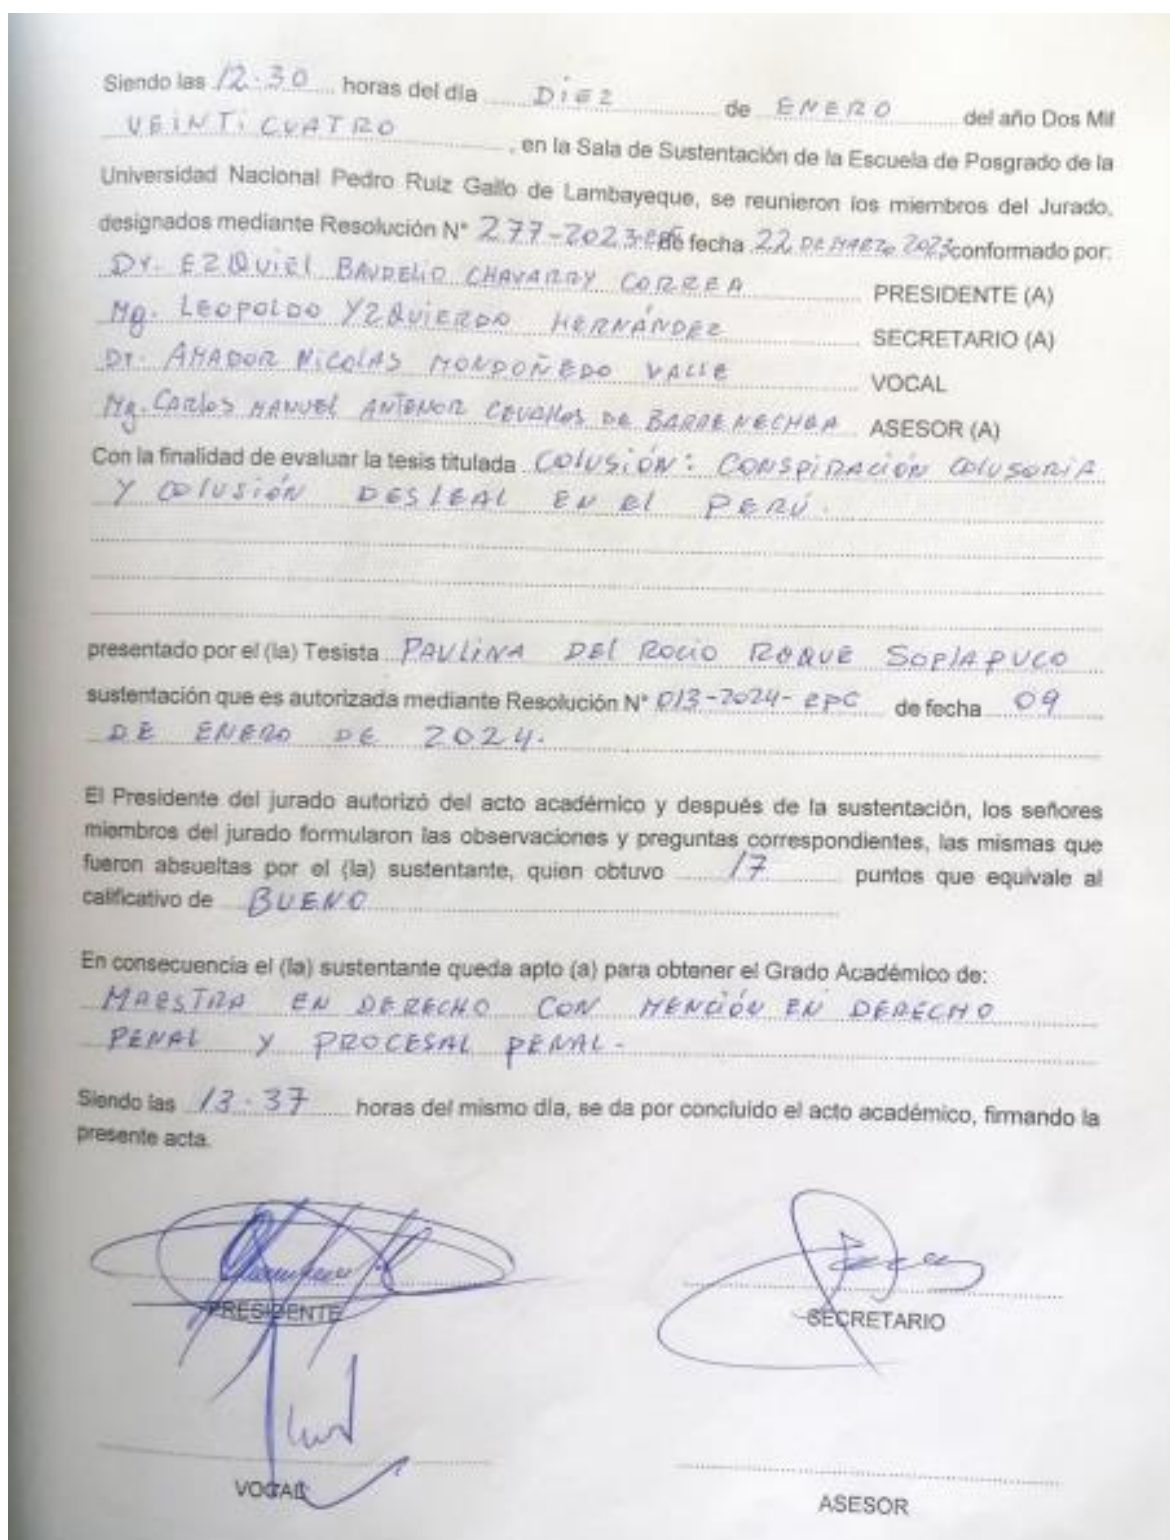 Siendo las 12.30 horas del día DiEZ de ENERO del año Dos Mil
VEiNTi CUATRO, en la Sala de Sustentación de la Escuela de Posgrado de la
Universidad Nacional Pedro Ruiz Gallo de Lambayeque, se reunieron los miembros del Jurado,
designados mediante Resolución N° 277-2023-EPG de fecha 22 DE MARZO 2023 conformado por:
Dr. EZQUiEL BAUDELIO CHAVARRY CORREA PRESIDENTE (A)
Mg. LEOPOLDO YZQUIERDO HERNÁNDEZ SECRETARIO (A)
Dr. AMADOR NICOLAS MONDOÑEDO VALLE VOCAL
Mg. CARLOS MANUEL ANTENOR CEVALLOS DE BARRENECHEA ASESOR (A)
Con la finalidad de evaluar la tesis titulada COLUSIÓN: CONSPIRACIÓN COLUSORIA
Y COLUSIÓN DESLEAL EN EL PERÚ.
presentado por el (la) Tesista PAULINA DEL ROCIO ROQUE SOPLAPUCO
sustentación que es autorizada mediante Resolución N° 013-2024-EPG de fecha 09
DE ENERO DE 2024.
El Presidente del jurado autorizó del acto académico y después de la sustentación, los señores
miembros del jurado formularon las observaciones y preguntas correspondientes, las mismas que
fueron absueltas por el (la) sustentante, quien obtuvo 17 puntos que equivale al
calificativo de BUENO
En consecuencia el (la) sustentante queda apto (a) para obtener el Grado Académico de:
MAESTRA EN DERECHO CON MENCIÓN EN DERECHO
PENAL Y PROCESAL PENAL.-
Siendo las 13.37 horas del mismo día, se da por concluido el acto académico, firmando la
presente acta.
PRESIDENTE
SECRETARIO
VOCAL
ASESOR